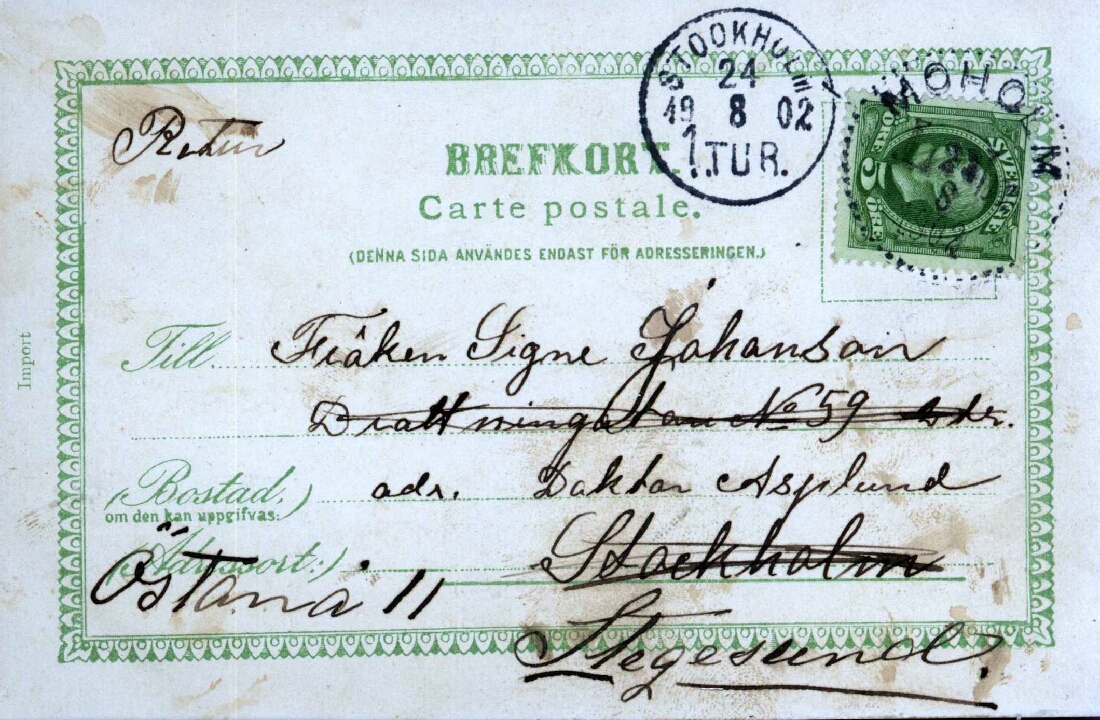 STOCKHOLM
24
19 8 02
1.TUR.
MOHOLM
SVERIGE
5
ÖRE
Retur
BREFKORT.
Carte postale.
(DENNA SIDA ANVÄNDES ENDAST FÖR ADRESSERINGEN.)
Till Fröken Signe Johanson
Drottninggatan No 59
(Bostad,) adr. Doktor Asplund
om den kan uppgifvas:
(Adressort:) Stockholm
Östanå 11
Stegesund.
Import